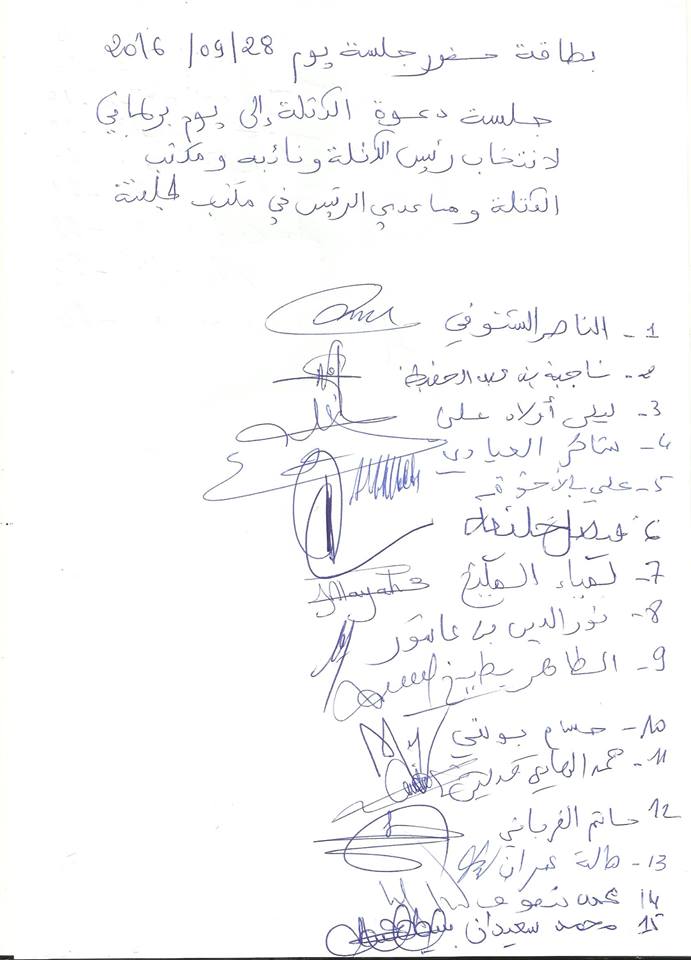 بطاقة حضور جلسة يوم 28/09/2016
جلسة دعوة الكتلة إلى يوم برلماني
لانتخاب رئيس الكتلة ونائبه ومكتب
الكتلة ومساعدي الرئيس في مكتب
1 - الناصر الشنوفي
2 - ناجية بن عبد الحفيظ
3 - ليلى أولاد علي
4 - شاكر العيادي
5 - علي بالأخوة
6 فيصل خليفة
7 - لمياء المليح
8 - نور الدين بن عاشور
9 - الطاهر بطيخ
10 - حسام بونني
11 - محمد الهادي قديش
12 حاتم الفرجاني
13 - هالة عمران
14 محمد
15 محمد سعيدان